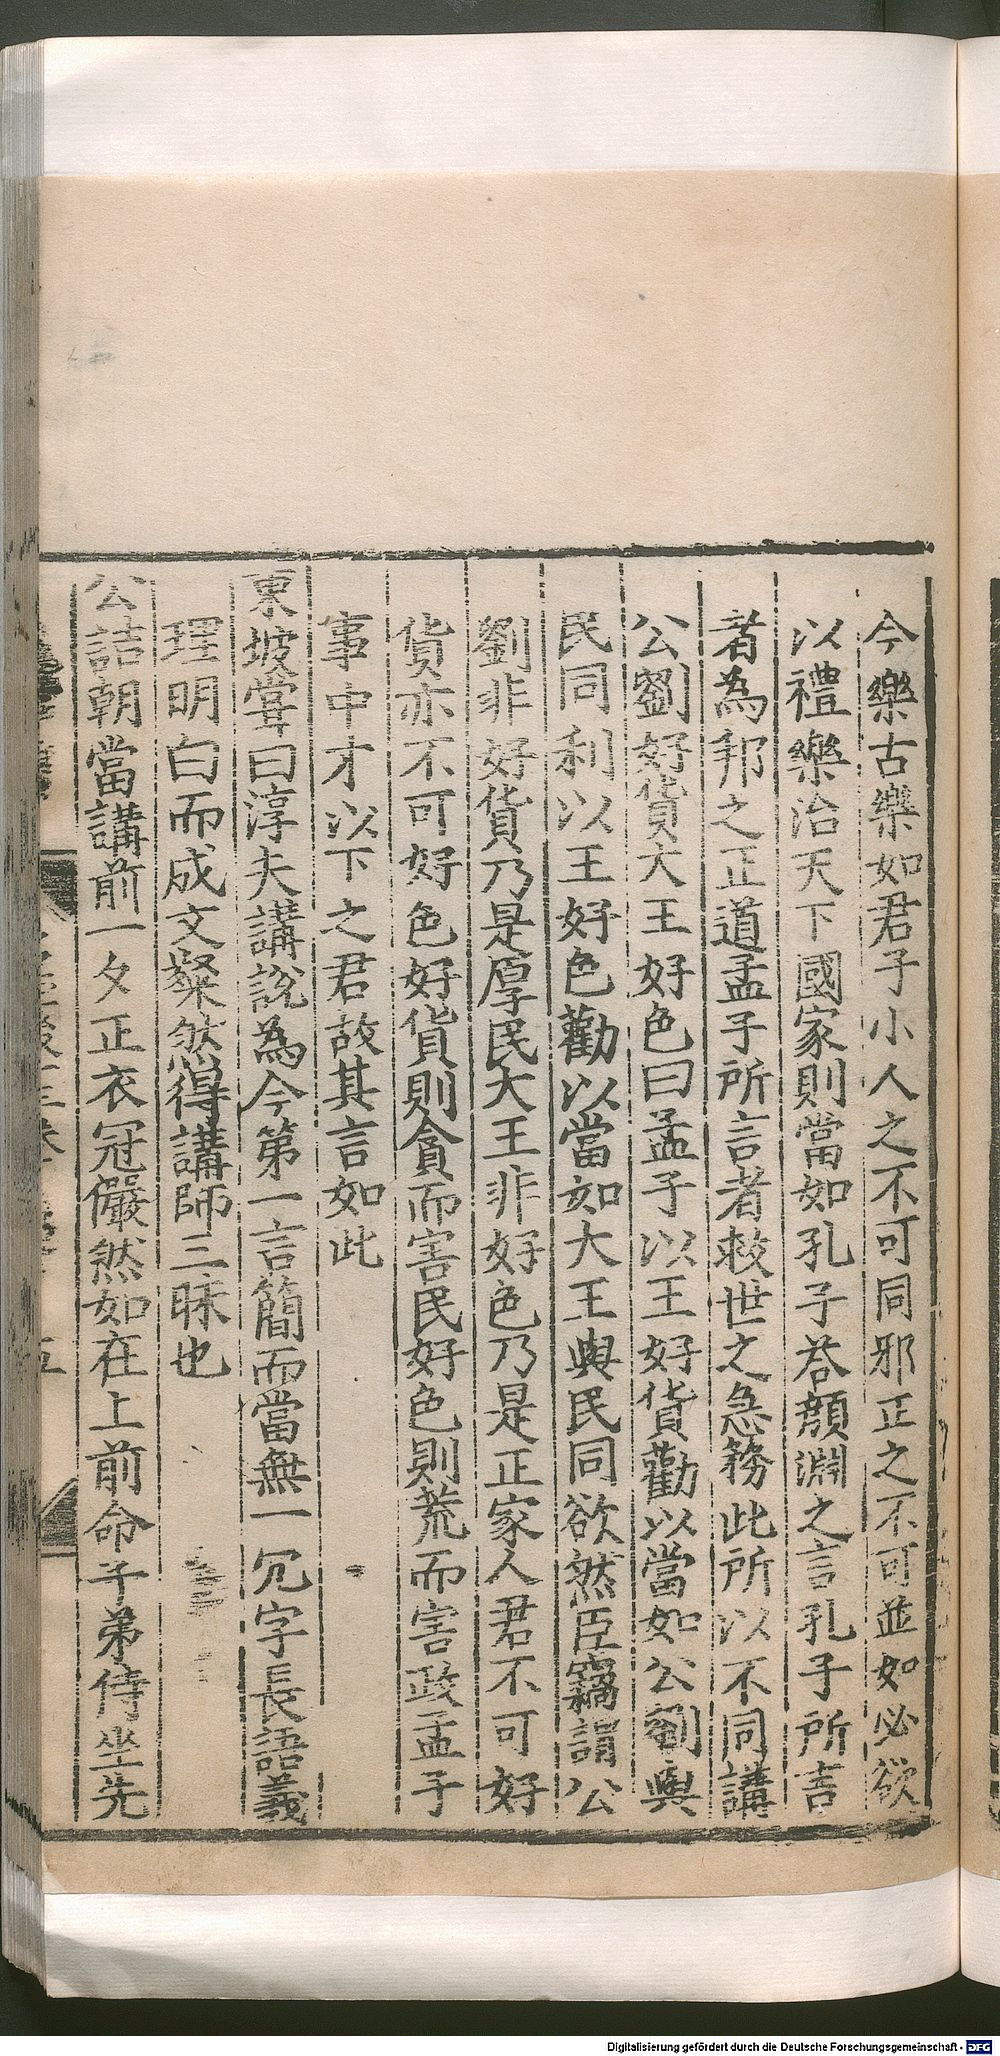 今樂古樂如君子小人之不可同邪正之不可並如必欲
以禮樂治天下國家則當如孔子荅顏淵之言孔子所言
者為邦之正道孟子所言者救世之急務此所以不同講
公劉好貨大王好色曰孟子以王好貨勸以當如公劉與
民同利以王好色勸以當如大王與民同欲然臣竊謂公
劉非好貨乃是厚民大王非好色乃是正家人君不可好
貨亦不可好色好貨則貪而害民好色則荒而害政孟子
事中才以下之君故其言如此
東坡甞曰淳夫講說為今第一言簡而當無一冗字長語義
理明白而成文粲然得講師三昧也
公詰朝當講前一夕正衣冠儼然如在上前命子弟侍坐先
五
Digitalisierung gefördert durch die Deutsche Forschungsgemeinschaft - DFG